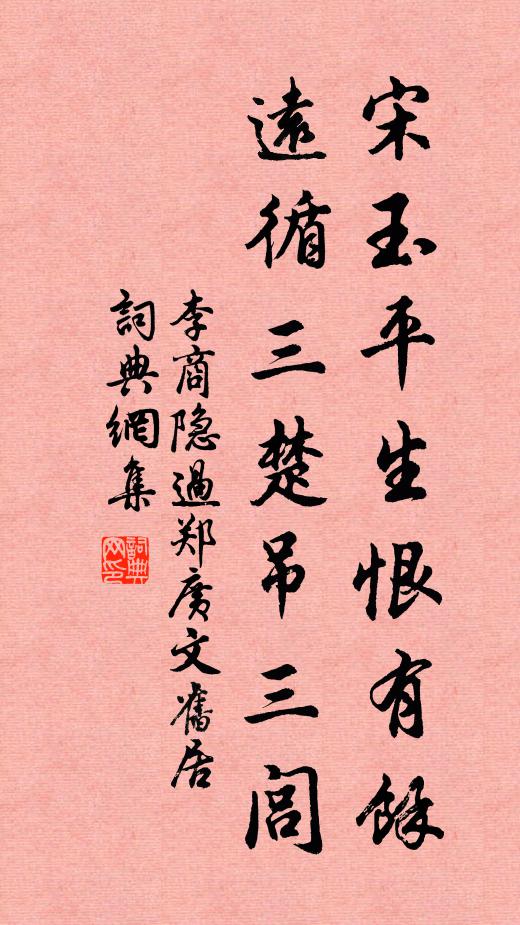 宋玉平生恨有餘
遠循三楚吊三閭
李商隐過郑廣文舊居
詞典網集
詞典
网印